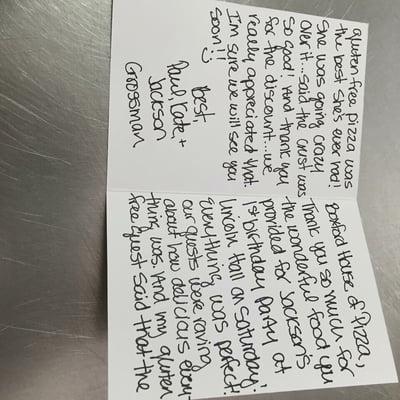 Boxford House of Pizza,
Thank you so much for
the wonderful food you
provided for Jackson's
1st birthday party at
Lincoln Hall on Saturday!
Everything was perfect!
our guests were raving
about how delicious every-
thing was. And my gluten
free guest said that the
gluten free pizza was
the best she's ever had!
She was going crazy
over it...said the crust was
so good! And thank you
for the discount...we
really appreciated that.
I'm sure we will see you
soon!! :)
Best,
Paul, Kate, +
Jackson
Grossman